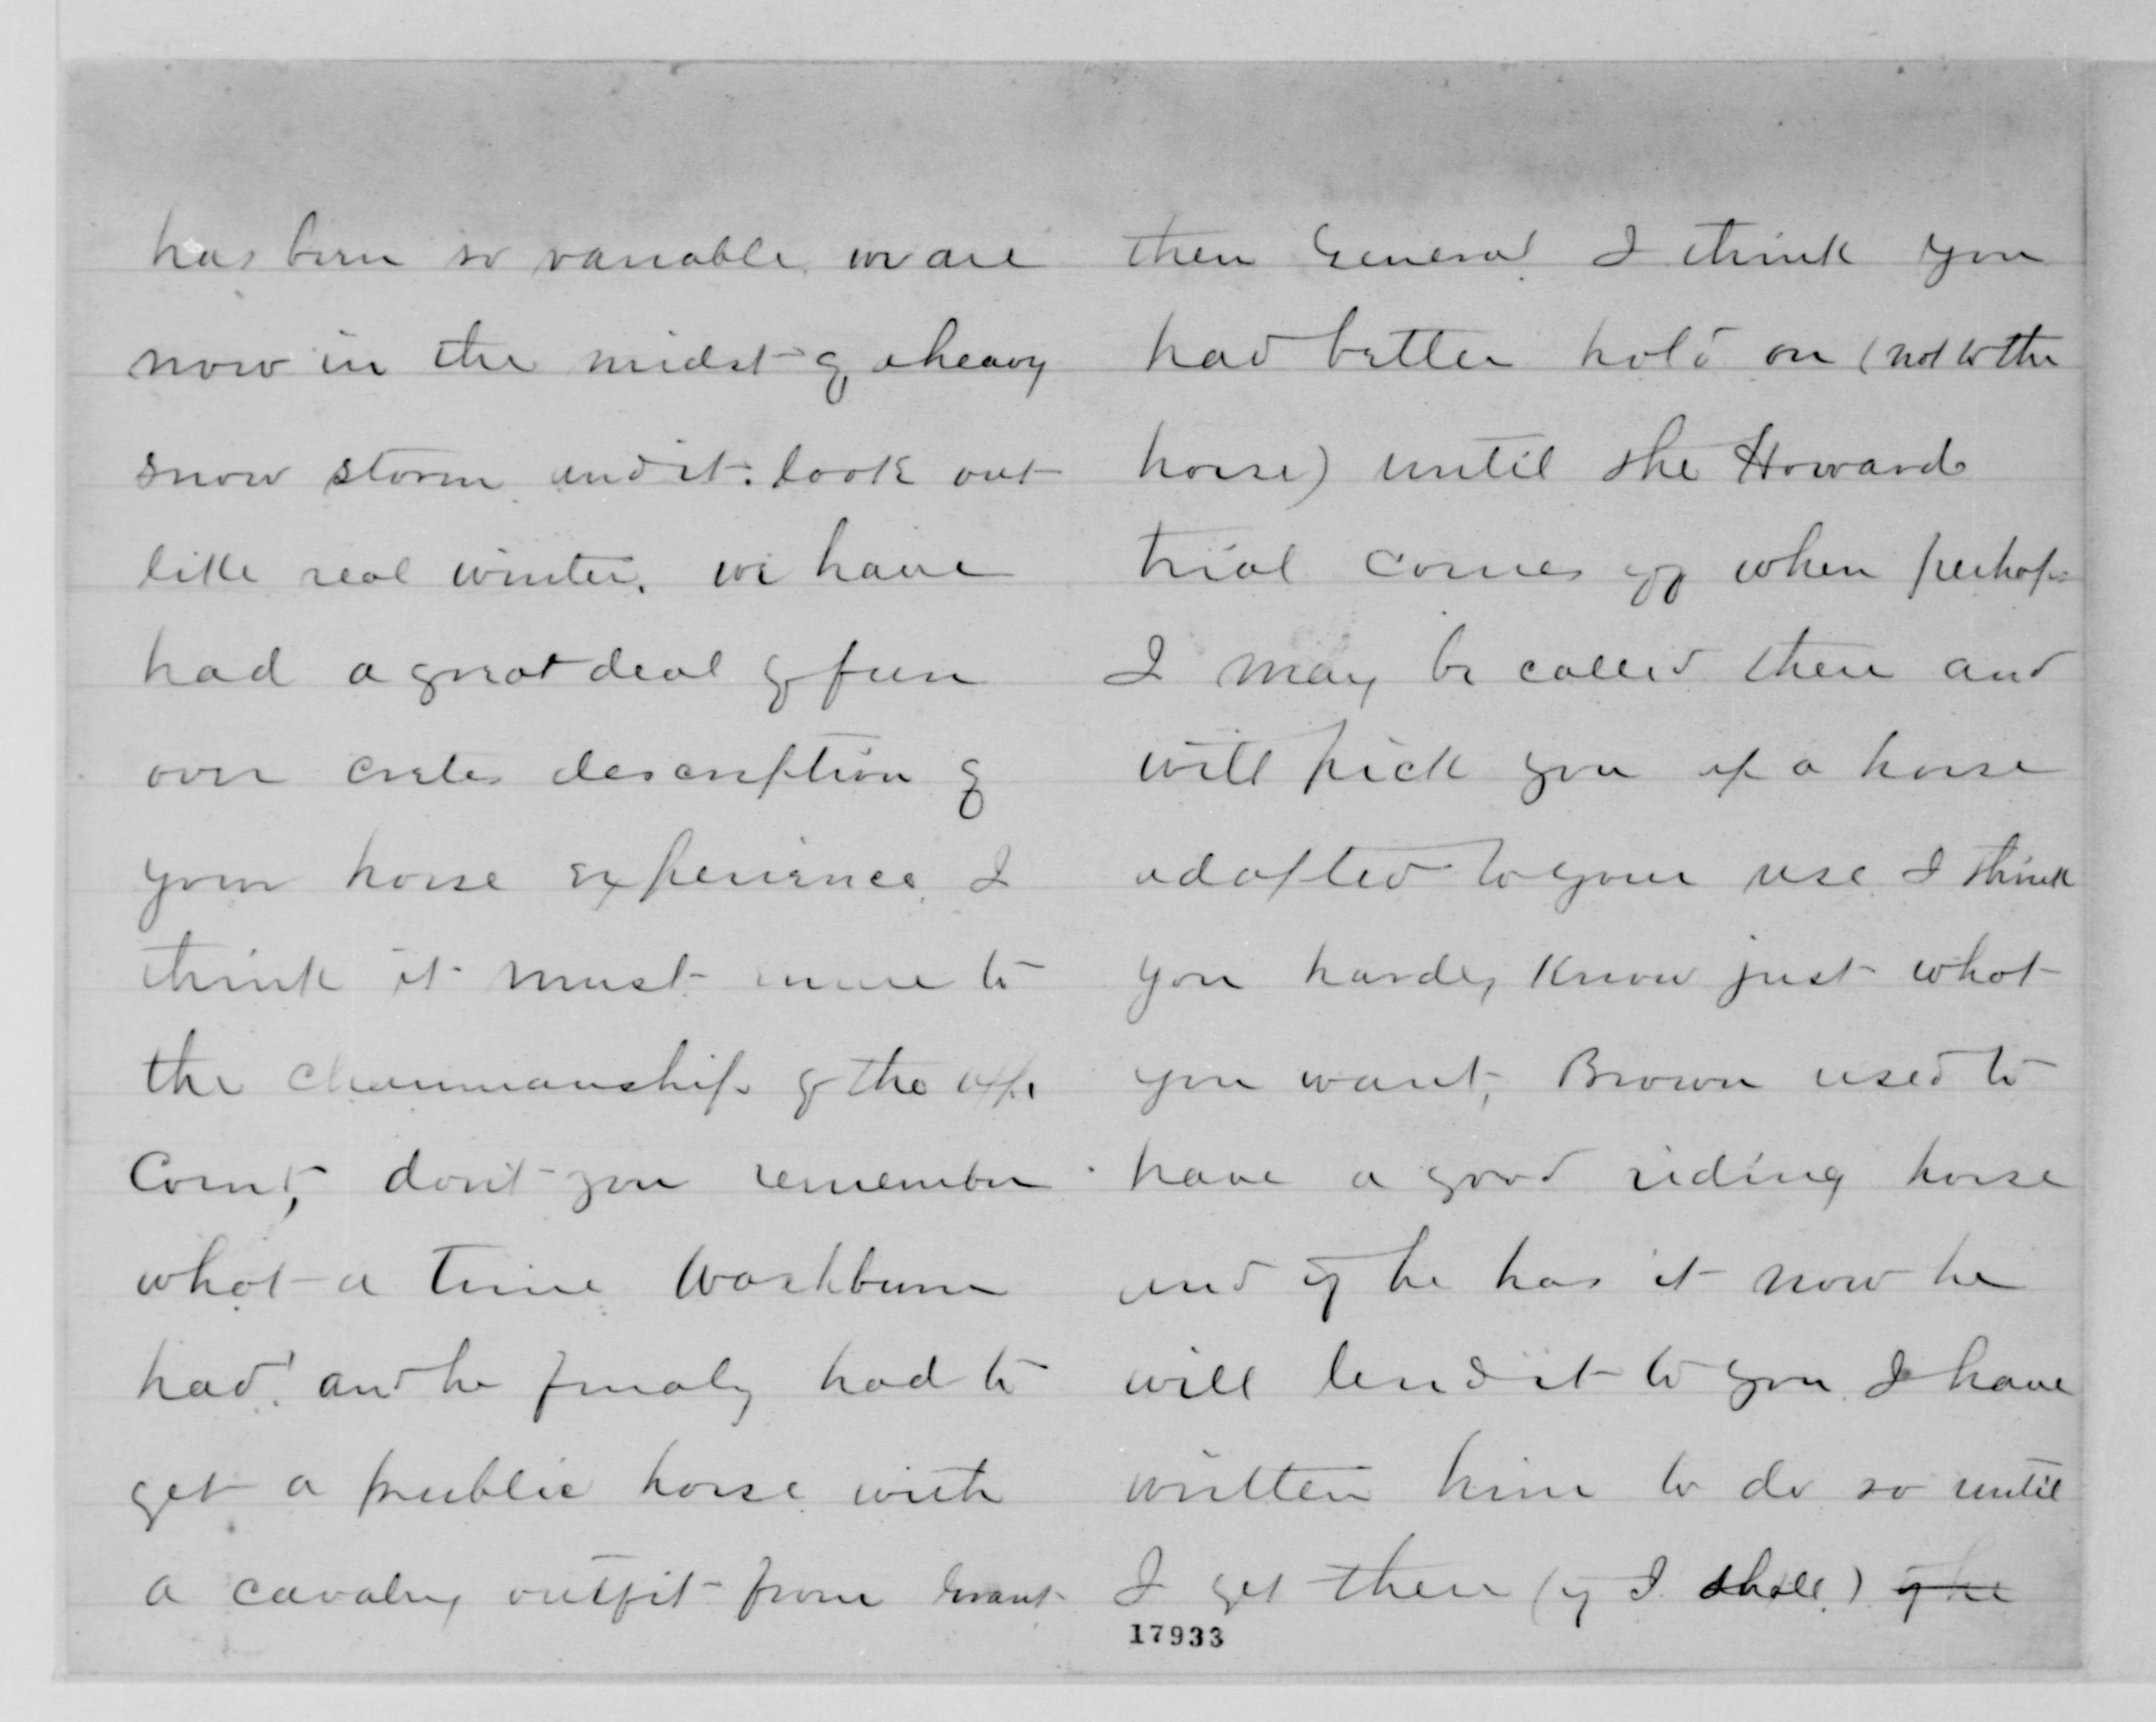 has been so variable, we are
now in the midst of a heavy
snow storm and it look out
like real winter. we have
had a great deal of fun
over crete's description of
your horse experience. I
think it must inure to
the chairmanship of the
Comt, don't you remember
what a time Washburn
had! and he finaly had to
get a public horse with
a cavalry outfit from Grant
then General I think you
had better hold on (not to the
horse) until the Howard
trial comes off when perhaps
I may be called there and
will pick you up a horse
adapted to your use I think
you hardly know just what
you want, Brown used to
have a good riding horse
and if he has it now he
will lend it to you I have
written him to do so until
I get there (if I shall) if he
17933